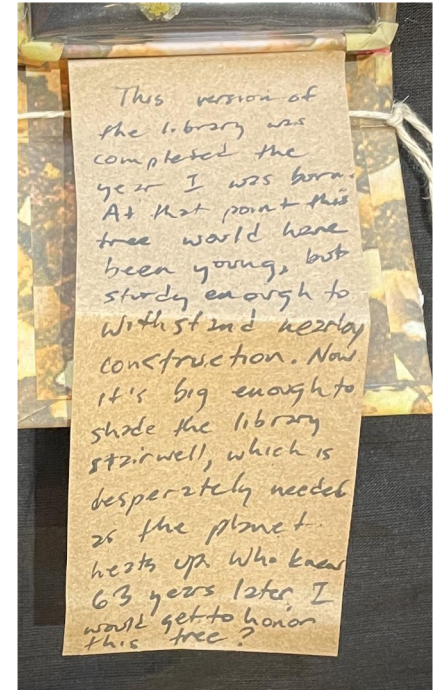 This version of
the library was
completed the
year I was born.
At that point this
tree would have
been young, but
sturdy enough to
withstand nearby
construction. Now
it's big enough to
shade the library
stairwell, which is
desperately needed
as the planet
heats up. Who knew
63 years later I
would get to honor
this tree?